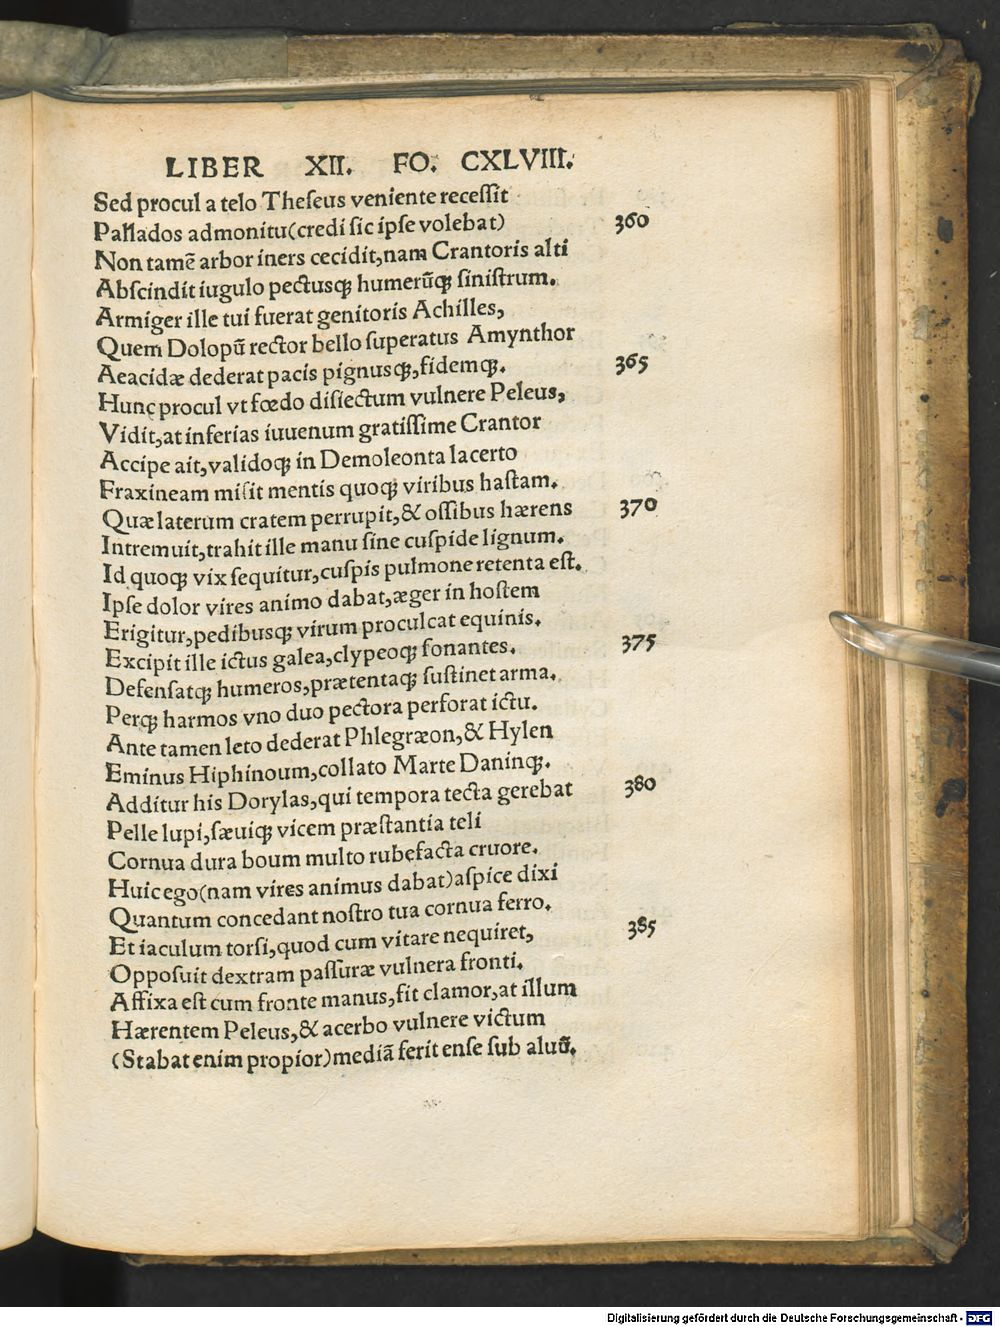 LIBER XII. FO. CXLVIII.
Sed procul a telo Theseus veniente recessit
Pallados admonitu(credi sic ipse volebat) 360
Non tamẽ arbor iners cecidit,nam Crantoris alti
Abscindit iugulo pectusqȝ humerũqȝ sinistrum.
Armiger ille tui fuerat genitoris Achilles,
Quem Dolopũ rector bello superatus Amynthor
Aeacidæ dederat pacis pignusqȝ,fidemqȝ. 365
Hunc procul vt fœdo disiectum vulnere Peleus,
Vidit,at inferias iuuenum gratissime Crantor
Accipe ait,validoqȝ in Demoleonta lacerto
Fraxineam misit mentis quoqȝ viribus hastam.
Quæ laterum cratem perrupit,& ossibus hærens 370
Intremuit,trahit ille manu sine cuspide lignum.
Id quoqȝ vix sequitur,cuspis pulmone retenta est.
Ipse dolor vires animo dabat,æger in hostem
Erigitur,pedibusqȝ virum proculcat equinis.
Excipit ille ictus galea,clypeoqȝ sonantes. 375
Defensatqȝ humeros,prætentaqȝ sustinet arma.
Perqȝ harmos vno duo pectora perforat ictu.
Ante tamen leto dederat Phlegræon,& Hylen
Eminus Hiphinoum,collato Marte Daninqȝ.
Additur his Dorylas,qui tempora tecta gerebat 380
Pelle lupi,sæuiqȝ vicem præstantia teli
Cornua dura boum multo rubefacta cruore.
Huic ego(nam vires animus dabat)aspice dixi
Quantum concedant nostro tua cornua ferro.
Et iaculum torsi,quod cum vitare nequiret, 385
Opposuit dextram passuræ vulnera fronti.
Affixa est cum fronte manus,fit clamor,at illum
Hærentem Peleus,& acerbo vulnere victum
(Stabat enim propior)mediã ferit ense sub aluũ.
Digitalisierung gefördert durch die Deutsche Forschungsgemeinschaft - DFG